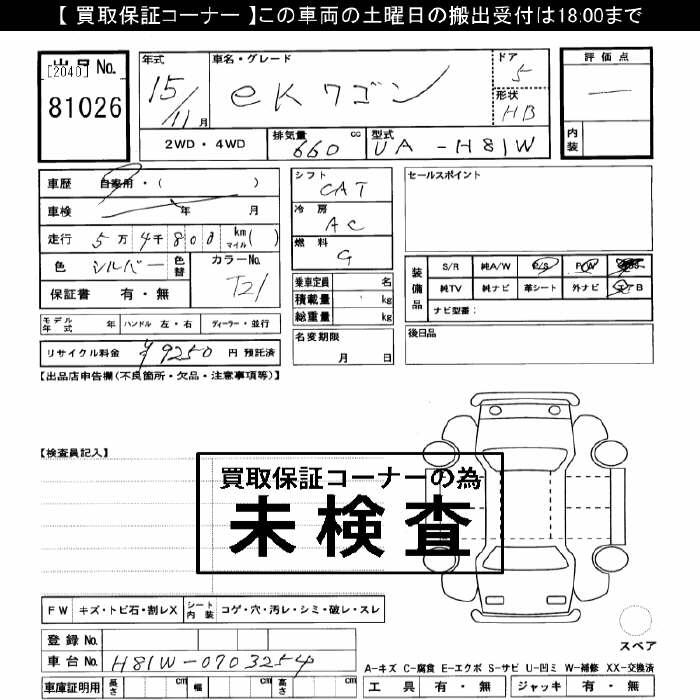 【 買取保証コーナー 】この車両の土曜日の搬出受付は18:00まで
出品 No.
[2040]
81026
年式
15/11月
車名・グレード
eKワゴン
ドア
5
形状
HB
2WD・4WD
排気量
660 cc
型式
UA-H81W
評価点
内装
車歴 自家用・( )
車検 年 月
走行 5万 4千 800 km マイル ( )
色 シルバー 色替
カラーNo.
T21
保証書 有・無
シフト
CAT
冷房
AC
燃料
G
乗車定員 名
積載量 kg
総重量 kg
セールスポイント
装備品 S/R 純A/W P/S P/W
純TV 純ナビ 革シート 外ナビ エアB
ナビ型番：
モデル年式 年 ハンドル 左・右 ディーラー・並行
リサイクル料金 ¥9250 円 預託済
名変期限
月 日
後日品
【出品店申告欄(不良箇所・欠品・注意事項等)】
【検査員記入】
買取保証コーナーの為
未検査
FW キズ・トビ石・割レX シート内装 コゲ・穴・汚レ・シミ・破レ・スレ
登録 No.
車台 No. H81W-0703254
車庫証明用 長さ cm 幅 cm 高さ cm
スペア
A-キズ C-腐食 E-エクボ S-サビ U-凹ミ W-補修 XX-交換済
工具 有・無 ジャッキ 有・無